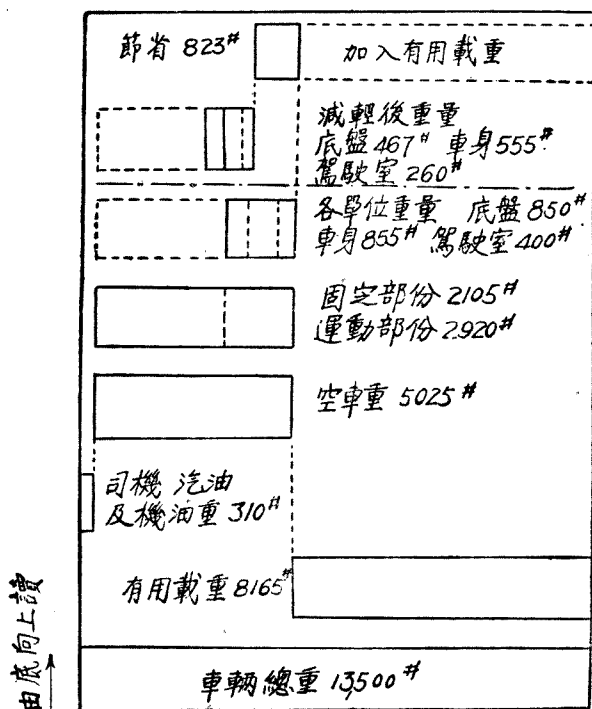 節省 823#
加入有用載重
減輕後重量
底盤 467# 車身 555#
駕駛室 260#
各單位重量 底盤 850#
車身 855# 駕駛室 400#
固定部份 2105#
運動部份 2920#
空車重 5025#
司機 汽油
及機油重 310#
有用載重 8165#
車輛總重 13,500#
由底向上讀